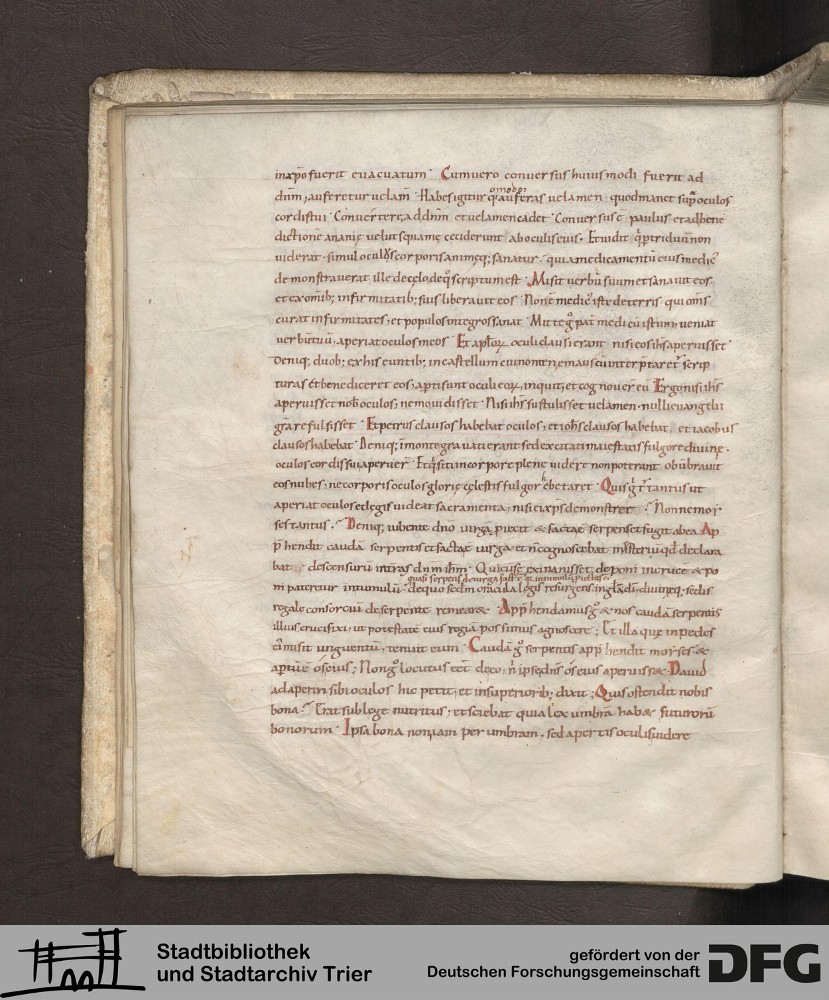 inxpo fuerit evacuatum · Cum uero conuersus huius modi fuerit ad
dnm, auferetur uelam̄ · Habes igitur qomodo auferas uelamen · quod manet sup oculos
cordis tui · Conuertere ad dnm̄ et uelamen cadet · Conuersus ē paulus et ad bene
dictionē ananię uelut squamę ceciderunt ab oculis eius · Et uidit q̄ p triduū non
uiderat · simul oculos corporis animęq; sanatur · quia medicamentū eius medic'
demonstrauerat ille de cęlo de q̊ scriptum est · Misit uerbū suum et sanauit eos
et ex omīb; infirmitatib; suis liberauit eos · Nonne medic' iste de terris qui om̄s
curat infirmitates, et populos integros sanat · Mitte g̊ pat̄ medicū istum, ueniat
uerbū tuū, aperiat oculos meos · Et aplorum oculi clausi erant nisi eos ihs aperuisset ·
Deniq; duob; ex his euntib; in castellum cui nom̄ emaus cū interp̄taret' scrip
turas et benediceret eos, apti sunt oculi eorum, inquit, et cognouer̄ eū Ergo nisi ihs
aperuisset nob oculos, nemo uidisset · Nisi ihs sustulisset uelamen · nulli euangelii
gr̄a refulsisset · Et petrus clausos habebat oculos, et iohs clausos habebat, et iacobus
clausos habebat · Deniq; in monte grauati erant sed excitati maiestatis fulgore diuinę ·
oculos cordis sui aperuer̄ · Et q̄ siti in corpore plene uidere non poterant obūbrauit
eos nubes, ne corporis oculos glorię cęlestis fulgor hebetaret · Quis g̊ tantus ut
aperiat oculos et legis uideat sacramenta, nisi ei xps demonstret · Non ne moy
ses tantus · Deniq; iubente dno uirgā proiecit & facta ē serpens et fugit ab ea · Ap
p̄hendit caudā serpentis et facta ē uirga et n̄ cognoscebat misteriū qđ declara
bat, descensurū in terras dnm ihm · Qui cū se exinanisset, deponi in cruce & po
ni pateretur in tumulū quasi serpens de uirga fact' ē
de quo secdm oracula legis resurgens in gl̄a dī diuineq; sedis
regale consortiū de serpente remeare · App̄hendamus g̊ & nos caudā serpentis
illius crucifixi, ut potestatē eius regiā possimus agnoscere ; Et illa que in pedes
ei' misit unguentū, tenuit eum · Caudā g̊ serpentis app̄hendit moyses &
aptū ē os eius ; Non g̊ locutus eēt deo, n̄ ipse dn̄s os eius aperuiss& · Dauid
adaperiri sibi oculos hic petit, et in superiorib; dixit ; Quis ostendit nobis
bona · Erat sub lege nutritus, et sciebat quia lex umbrā hab& futurorū
bonorum · Ipsa bona non iam per umbram, sed apertis oculis uidere
Stadtbibliothek
und Stadtarchiv Trier
gefördert von der
Deutschen Forschungsgemeinschaft
DFG